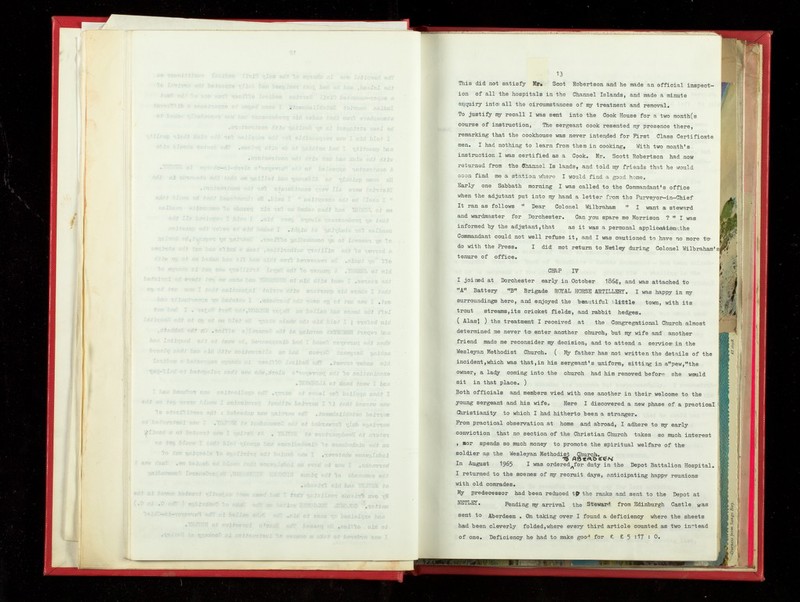 13
This did not satisfy Mr. Scot Robertson and he made an official inspect-
ion of all the hospitals in the Channel Islands, and made a minute
enquiry into all the circumstances of my treatment and removal.
To justify my recall I was sent into the Cook House for a two month(s
course of instruction. The sergeant cook resented my presence there,
remarking that the cookhouse was never intended for First Class Certificate
men. I had nothing to learn from them in cooking. With two month's
instruction I was certified as a Cook. Mr. Scott Robertson had now
returned from the Channel Is lands, and told my friends that he would
soon find me a station where I would find a good home.
Early one Sabbath morning I was called to the Commandant's office
when the adjutant put into my hand a letter from the Purveyor-in-Chief
It ran as follows " Dear Colonel Wilbraham " I want a steward
and wardmaster for Dorchester. Can you spare me Morrison ? " I was
informed by the adjutant,that as it was a personal application:the
Commandant could not well refuse it, and I was cautioned to have no more to
do with the Press. I did not return to Netley during Colonel Wilbraham's
tenure of office.
CHAP IV
I joined at Dorchester early in October 1864, and was attached to
"A" Battery "B" Brigade ROYAL HORSE ARTILLERY. I was happy in my
surroundings here, and enjoyed the beautiful little town, with its
trout streams,its cricket fields, and rabbit hedges.
( Alas! ) the treatment I received at the Congregational Church almost
determined me never to enter another church, but my wife and another
friend made me reconsider my decision, and to attend a service in the
Wesleyan Methodist Church. ( My father has not written the details of the
incident,which was that,in his sergeant's uniform, sitting in a"pew,"the
owner, a lady coming into the church had him removed before she would
sit in that place. )
Both officials and members vied with one another in their welcome to the
young sergeant and his wife. Here I discovered a new phase of a practical
Christianity to which I had hitherto been a stranger.
From practical observation at home and abroad, I adhere to my early
conviction that no section of the Christian Church takes so much interest
, nor spends so much money to promote the spiritual welfare of the
soldier as the Wesleyan Methodist Church.
TO ABERDEEN
In August 1965 I was ordered for duty in the Depot Battalion Hospital.
I returned to the scenes of my recruit days, anticipating happy reunions
with old comrades.
My predecessor had been reduced to the ranks and sent to the Depot at
NETLEY. Pending my arrival the Steward from Edinburgh Castle was
sent to Aberdeen . On taking over I found a deficiency where the sheets
had been cleverly folded,where every third article counted as two instead
of one. Deficiency he had to make good for £ £ 5 :17 : 0.